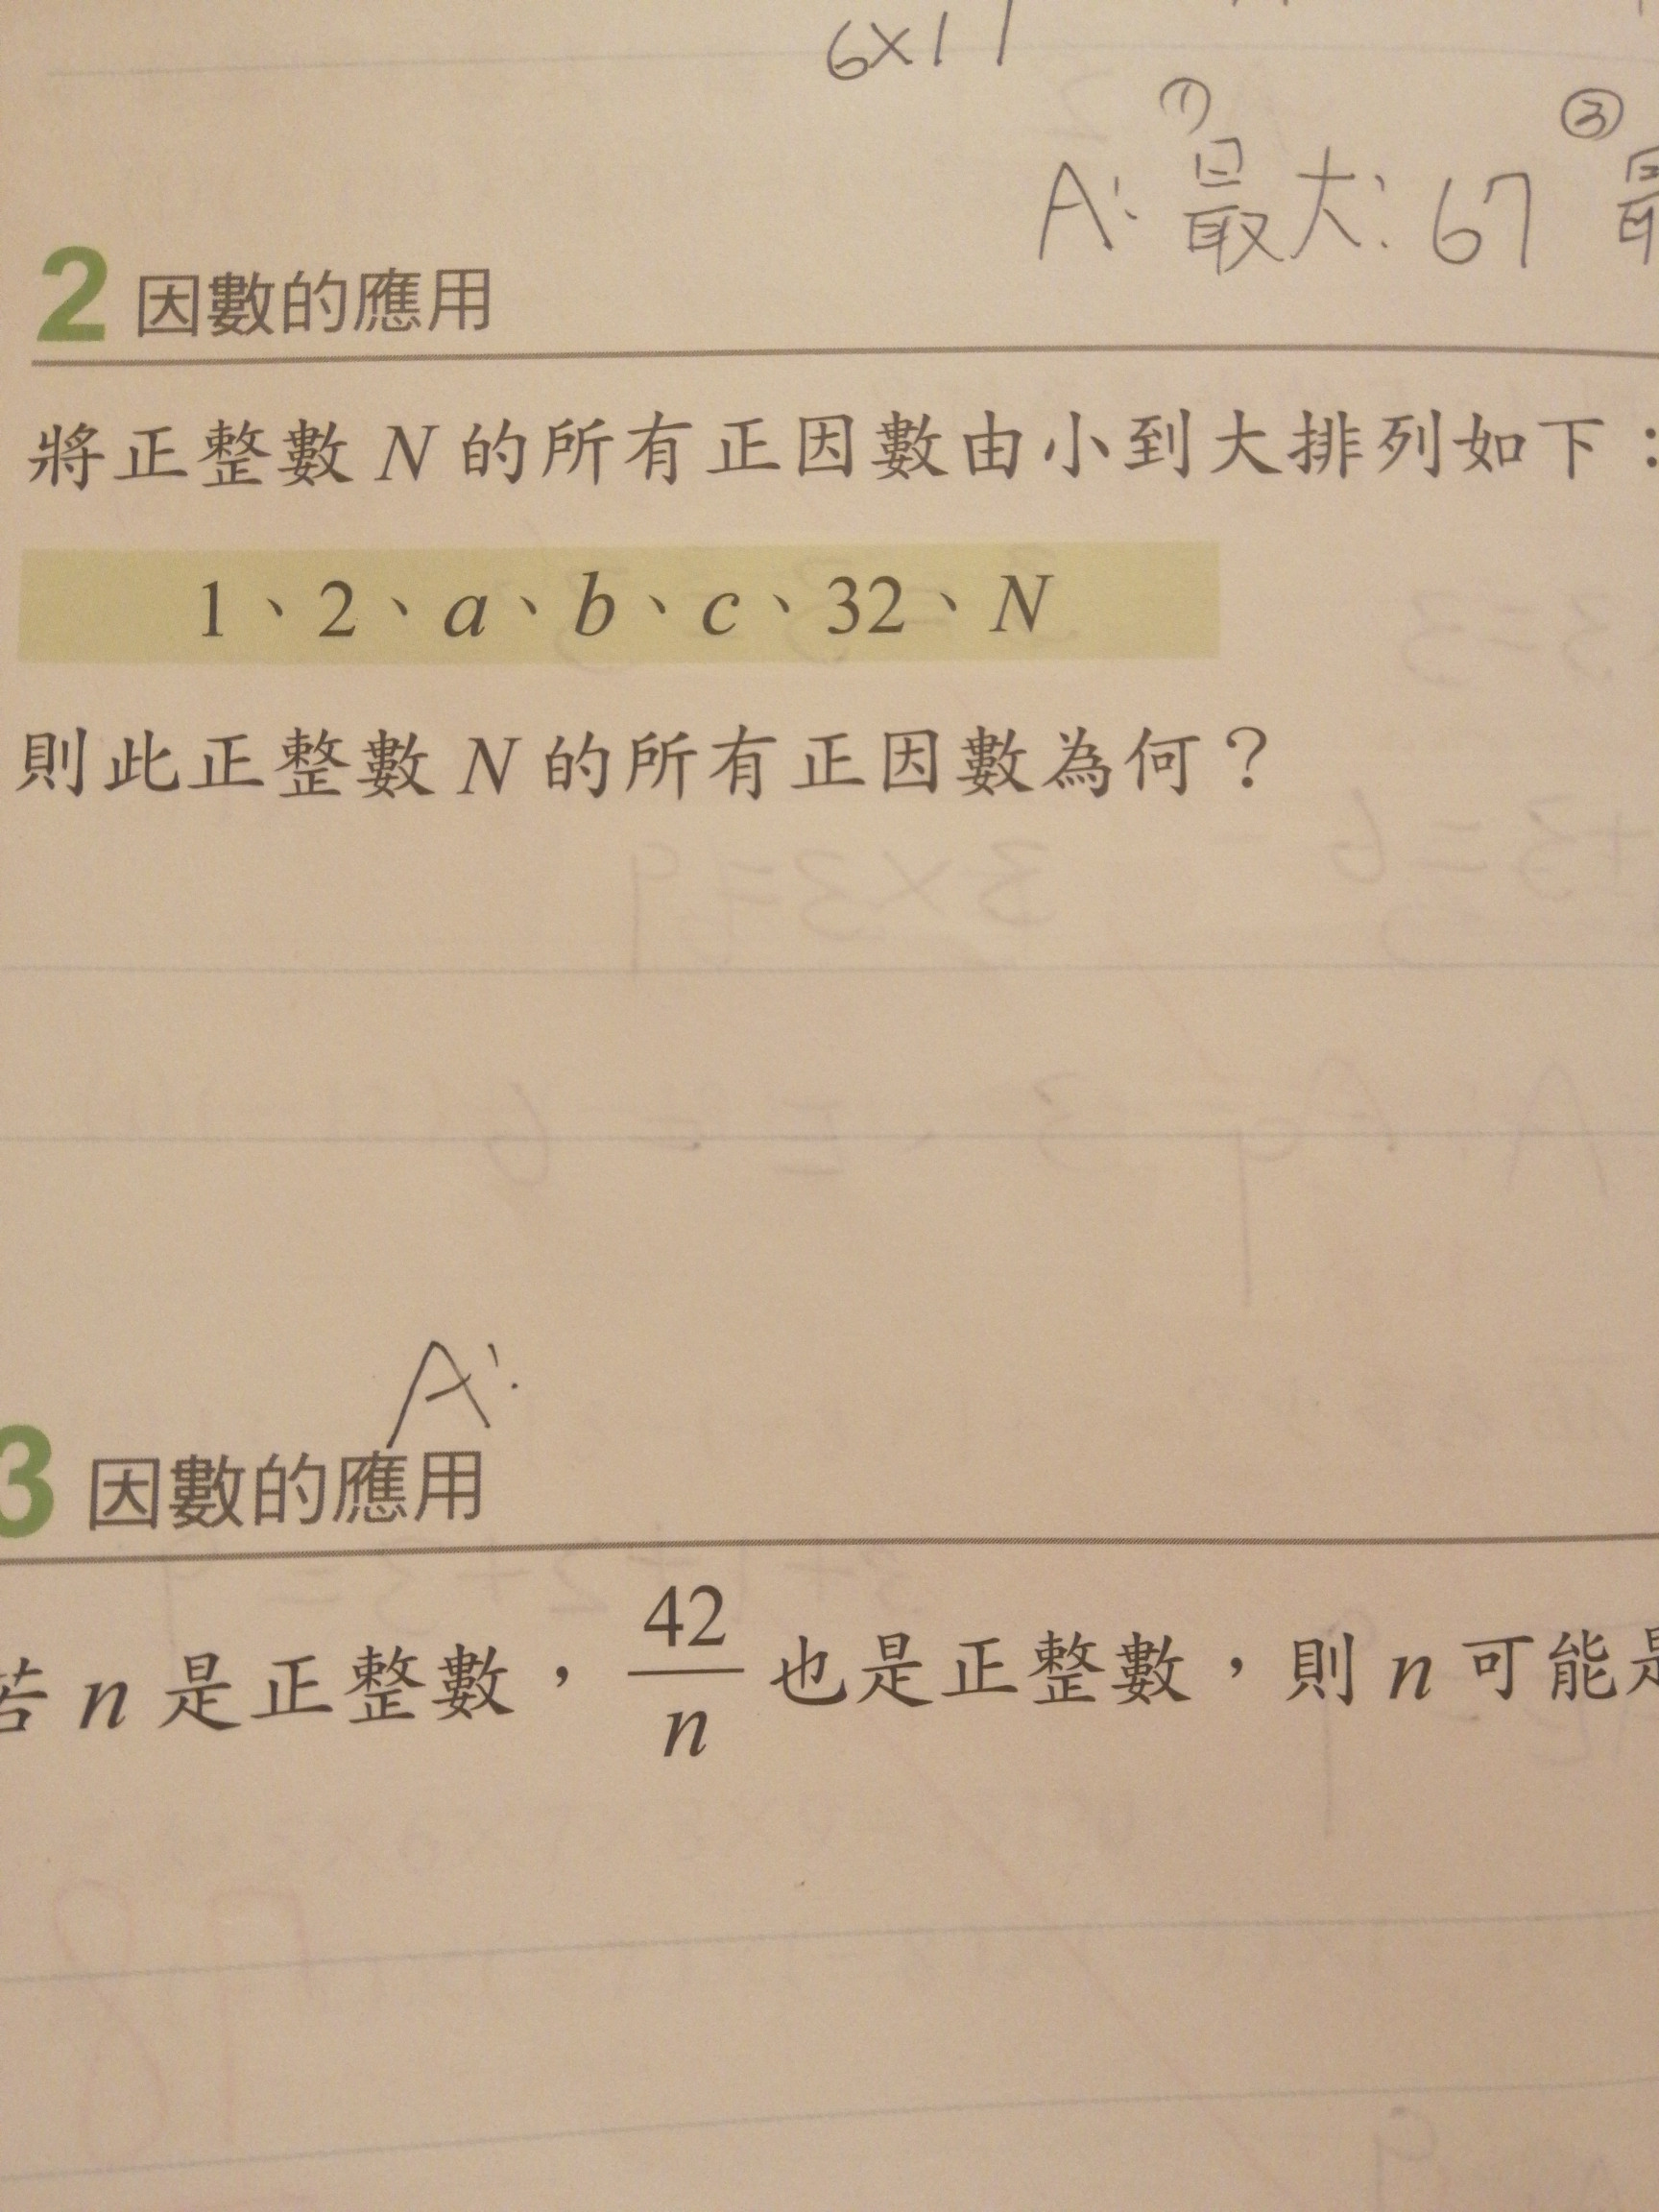 6×11
① ③
A: 最大: 67 最
2 因數的應用
將正整數 N 的所有正因數由小到大排列如下：
1、2、a、b、c、32、N
則此正整數 N 的所有正因數為何？
A:
3 因數的應用
若 n 是正整數，42/n 也是正整數，則 n 可能是